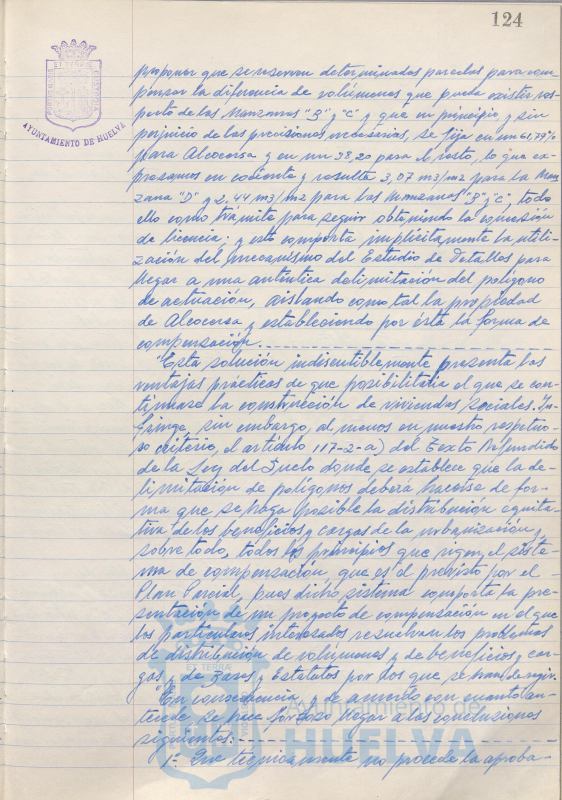 124
AYUNTAMIENTO DE HUELVA
proponer que se reserven determinadas parcelas para com-
pensar la diferencia de volúmenes que pueda existir res-
pecto de las Manzanas "B" y "C" y que en principio y sin
perjuicio de las precisiones necesarias, se fija en un 61,79%
para Alcocorsa y en un 38,20 para el resto, lo que ex-
presamos en cociente y resulta 3,07 m3/m2 para la Man-
zana "D" y 2,44 m3/m2 para las Manzanas "B" y "C", todo
ello como trámite para seguir obteniendo la concesión
de licencia; y esto comporta implícitamente la utili-
zación del mecanismo del Estudio de Detalles para
llegar a una auténtica delimitación del polígono
de actuación, aislando como tal la propiedad
de Alcocorsa y estableciendo por ésta la forma de
compensación.
"Esta solución indiscutiblemente presenta las
ventajas prácticas de que posibilitaría el que se con-
tinuase la construcción de viviendas sociales. In-
fringe, sin embargo, al menos en nuestro respetuo-
so criterio, el artículo 117-2-a) del Texto Refundido
de la Ley del Suelo donde se establece que la de-
limitación de polígonos deberá hacerse de for-
ma que se haga posible la distribución equita-
tiva de los beneficios y cargas de la urbanización y,
sobre todo, todos los principios que rigen el siste-
ma de compensación que es el previsto por el
Plan Parcial, pues dicho sistema comporta la pre-
sentación de un proyecto de compensación en el que
los particulares interesados resuelvan los problemas
de distribución de volúmenes y de beneficios, car-
gas y de Bases y Estatutos por los que se han de regir.
"En consecuencia, y de acuerdo con cuanto an-
tecede, se hace forzoso llegar a las conclusiones
siguientes:
1ª. Que técnicamente no procede la aproba-
Ayuntamiento de
HUELVA